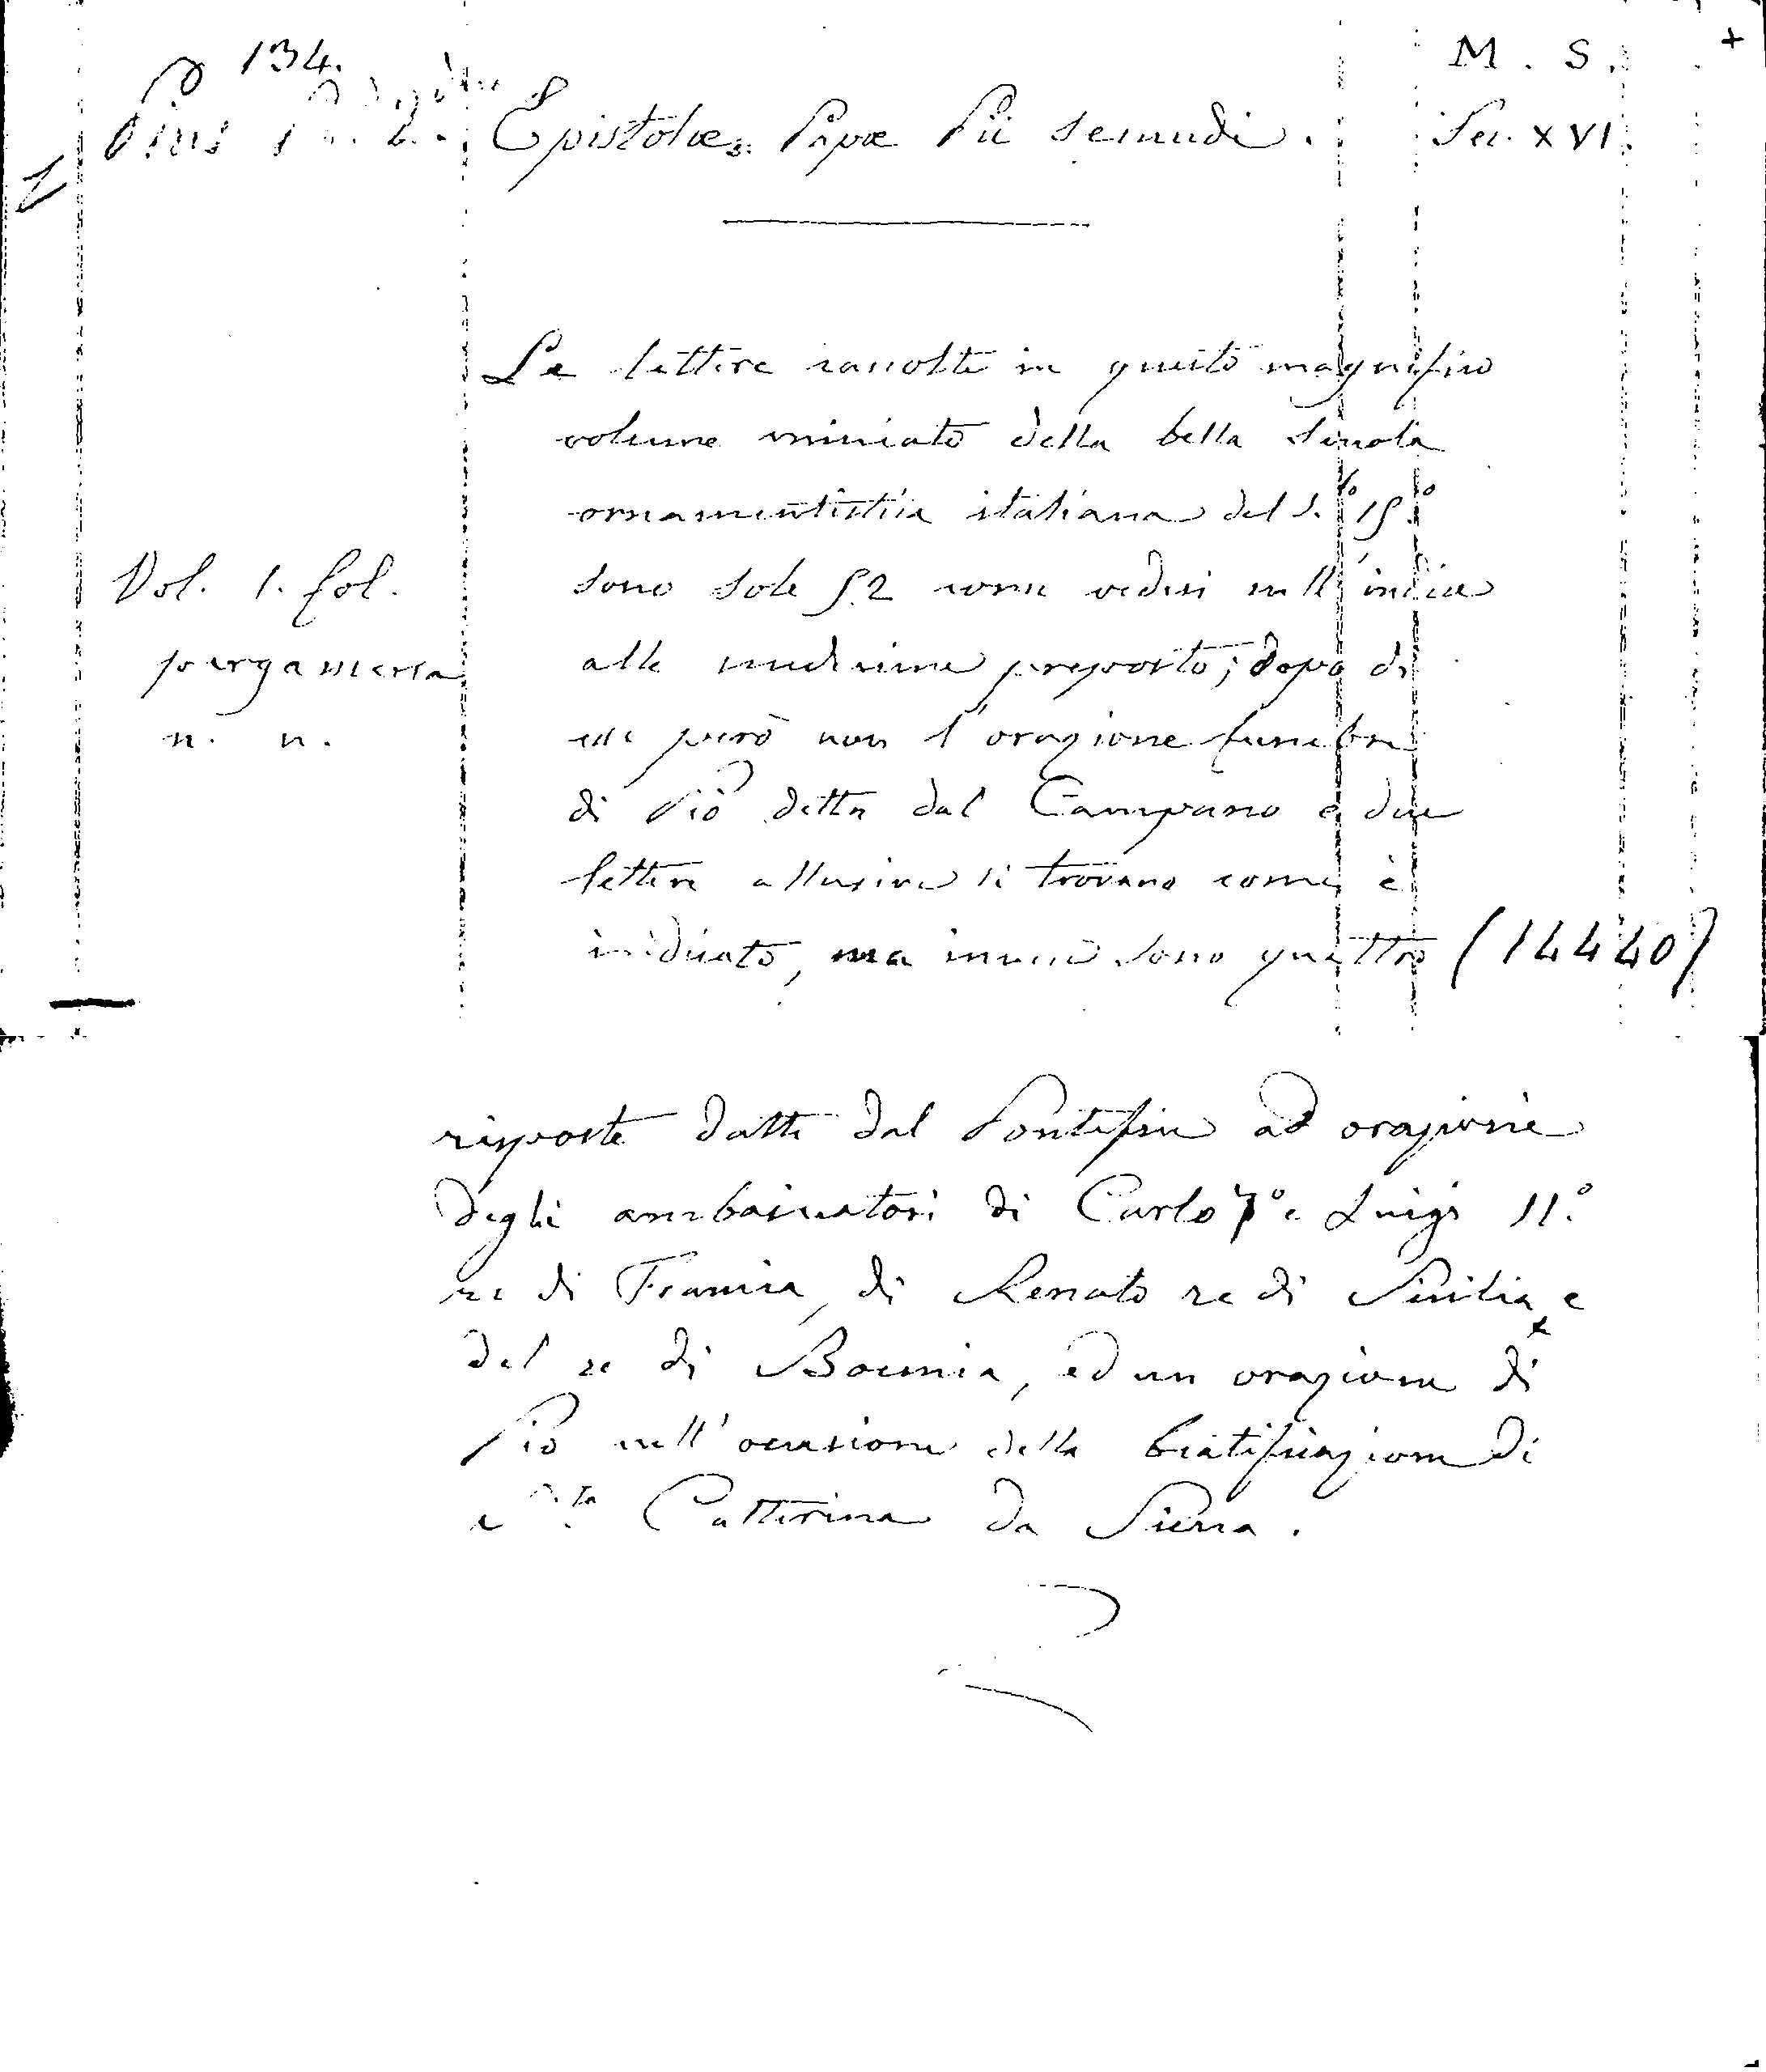 134.
M. S. +
Pius
Epistolæ Papæ Pii secundi.
Sec. XVI.
Le lettere raccolte in questo magnifico
volume miniato della bella scuola
ornamentistica italiana del s.lo 15.o
Vol. 1. fol.
sono sole 52 come vedesi nell'indice
pergamena
alle medesime preposto; dopo di
n. n.
esse però non l'orazione funebre
di Pio detta dal Campano e due
lettere allusive si trovano come è
indicato, ma invece sono quattro
(14440)
risposte date dal Pontefice ad orazione
degli ambasciatori di Carlo 7° e Luigi 11.°
re di Francia, di Renato re di Sicilia e
del re di Boemia, ed un orazione di
Pio nell'occasione della beatificazione di
Catterina da Siena.